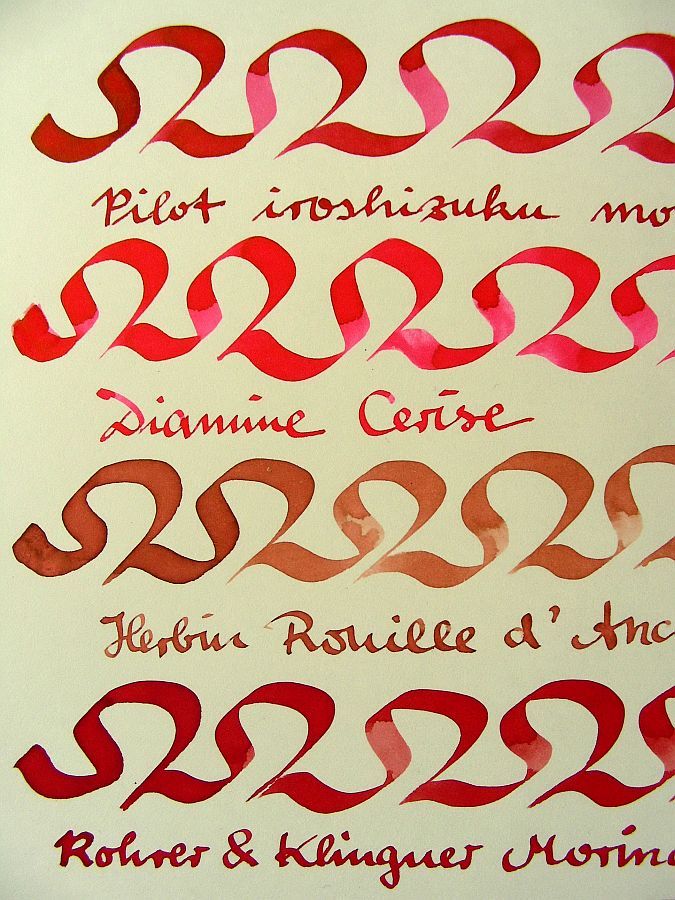 Pilot iroshizuku mo
Diamine Cerise
Herbin Rouille d'Anc
Rohrer & Klingner Morind